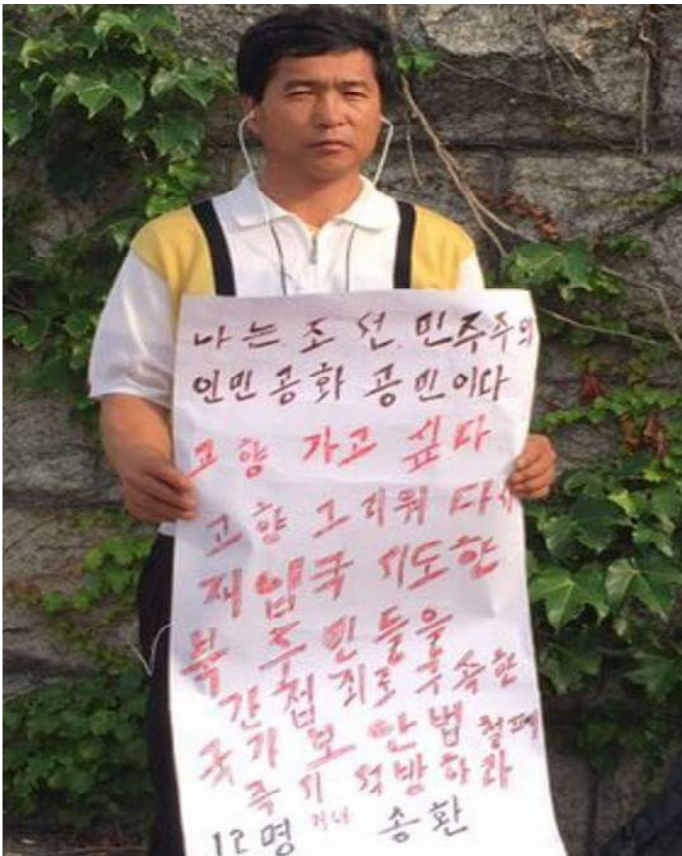 나는 조선 민주주의
인민공화 공민이다
고향 가고 싶다
고향 그리워 다시
재입국 시도한
북 주민들을
간첩죄로 구속한
국가보안법 철폐
즉시 석방하라
12명 처녀 송환